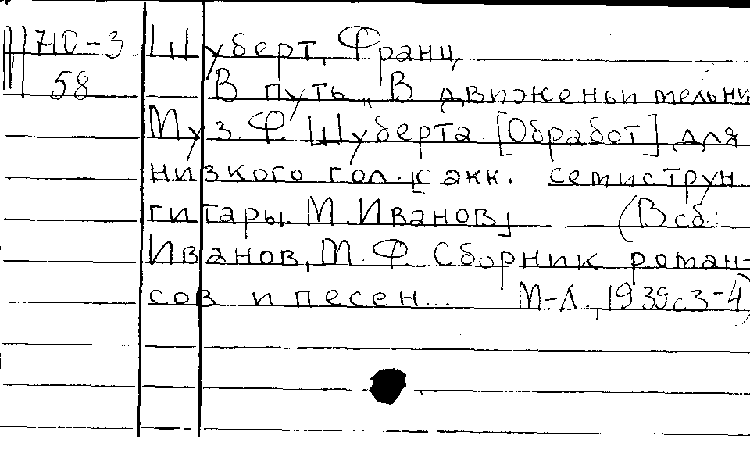 Ш710-3 Шуберт, Франц
58 В путь „В движеньи мельни
Муз. Ф. Шуберта. [Обработ] для
низкого гол. [с акк. семиструн
гитары М. Иванов] (В сб:
Иванов, М. Ф. Сборник роман-
сов и песен... М-Л., 1939 с 3-4)